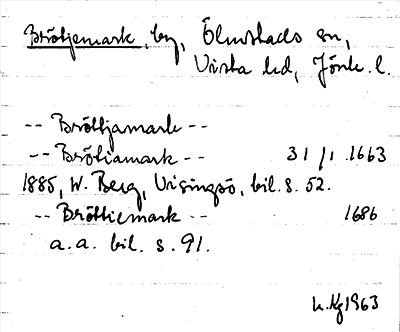 Bröttjemark, by, Ölmstads sn,
Vista hd, Jönk. l.
-- Bröttjamark --
-- Brötiamark -- 31/1 1663
1885, W. Berg, Visingsö, bil. s. 52.
-- Bröttiemark -- 1686
a.a. bil. s. 91.
1963